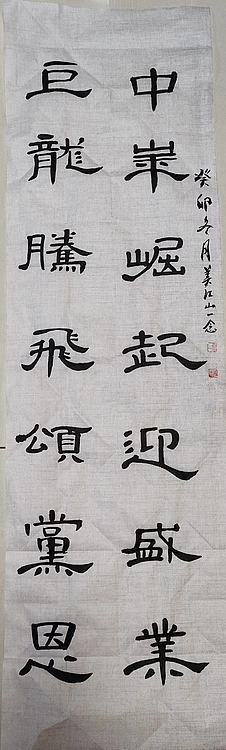 中崋崛起迎盛業
巨龍騰飛頌黨恩
癸卯冬月美江山一念